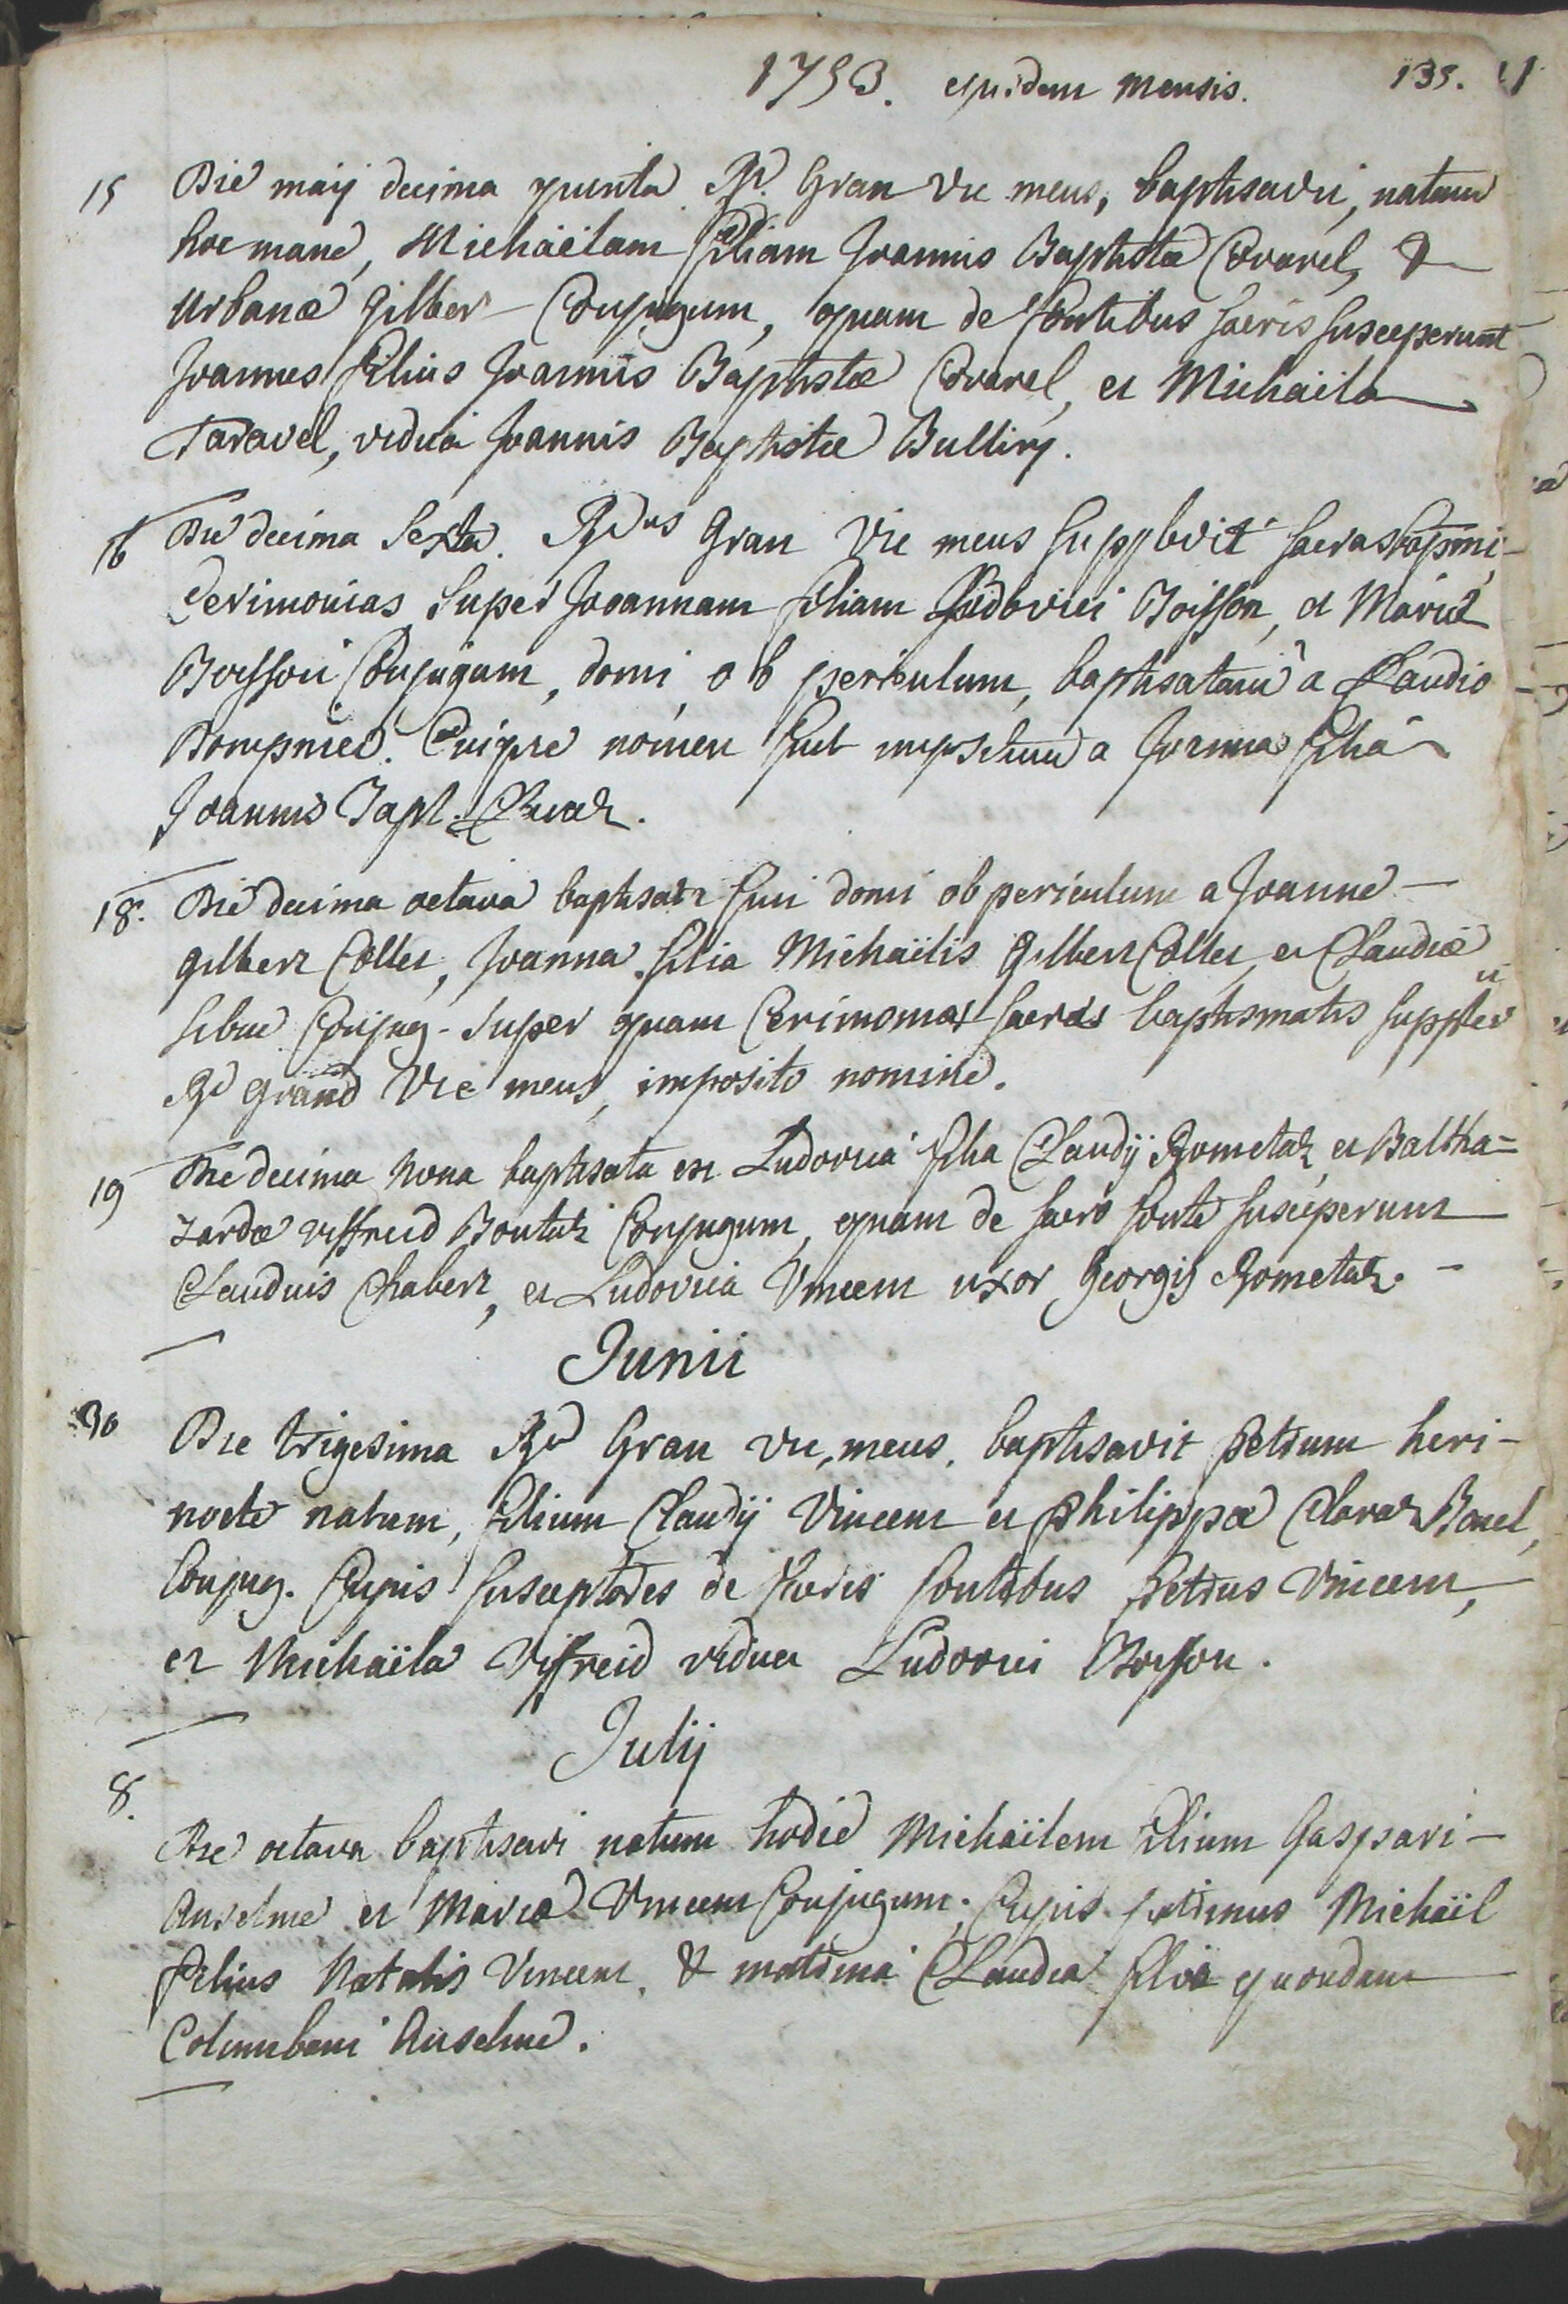 1753. ejusdem mensis. 135.
15 Die maij decima quinta Rd. Gran Vic meus, baptisavit, natam
hoc mane, Michaëlam filiam Joannis Baptistæ Covarel, &
Urbanæ Gilber Conjugum, quam de fontibus sacris susceperunt
Joannes filius Joannis Baptistæ Covarel, et Michaëla
Taravel, vidua Joannis Baptistæ Bulliry.
16 Die decima sexta. Rdus Gran Vic meus supplevit sacras bapmi
Cerimonias super Joannam filiam Ludovici Boisson, et Mariæ
Boisson Conjugum, domi ob periculum, baptisatam a Claudio
Dompnier. Cuique nomen fuit impositum a Joanna filiâ
Joannis Bapt.
18. Die decima octava baptisata fuit domi ob periculum a Joanne
Gilbert Collet, Joanna filia Michaëlis Gilbert Collet, et Claudiæ
Conjug. super quam Cerimonias sacras baptismatis supplevit
Rd Grand Vic meus, imposito nomine.
19 Die decima nona baptisata est Ludovica filia Claudij Rometaz et Baltha=
zardæ Viffreid Boutaz Conjugum, quam de sacro fonte susceperunt
Claudius Chabert, et Ludovica Vincent uxor Georgij Rometaz.
Junii
30 Die trigesima Rd Gran Vic, meus, baptisavit Petrum heri
nocte natum, filium Claudij Vincent et Philippæ Claraz Bonel,
Conjug. Cujus susceptores de sacris fontibus Petrus Vincent,
et Michaëla Viffreid vidua Ludovici Boisson.
Julij
8. Die octava baptisavi natum hodie Michaëlem filium Gaspari
Anselme et Mariæ Vincent Conjugum. Cujus patrinus Michaël
filius Natalis Vincent, & matrina Claudia filia quondam
Columbani Anselme.